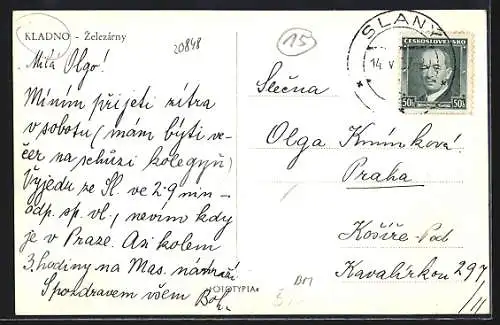 KLADNO - Železárny
20848
15
SLANÝ
14 V
ČESKOSLOVENSKO
50h 50h
Milá Olgo!
Míním přijeti zítra
v sobotu (mám býti ve-
čer na schůzi kolegyň)
Vyjedu ze Sl. ve 2·9 min -
odp. sp. vl., nevím kdy
je v Praze. Asi kolem
3. hodiny na Mas. nádraží
S pozdravem všem
Slečna
Olga Kmínková
Praha
Košíře - Pod
Kavalírkou 297
/II
FOTOTYPIA
BM